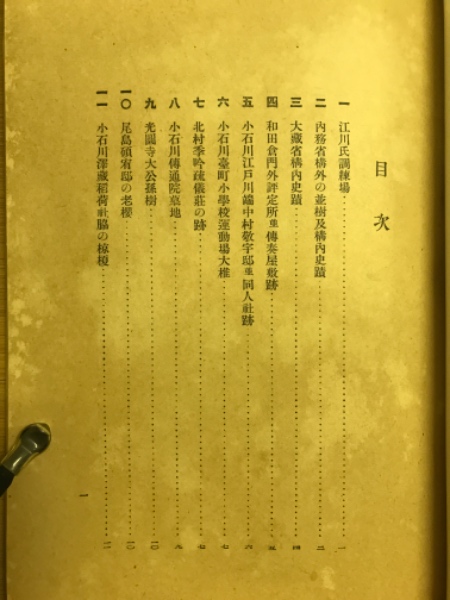 目次
一 江川氏調練場 一
二 內務省構外の並樹及構內史蹟 三
三 大藏省構內史蹟 四
四 和田倉門外評定所並傳奏屋敷跡 五
五 小石川江戶川端中村敬宇邸並同人社跡 六
六 小石川臺町小學校運動場大椎 七
七 北村季吟疏儀莊の跡 七
八 小石川傳通院墓地 九
九 光圓寺大公孫樹 一〇
一〇 尾島碩宥邸の老櫻 一〇
一一 小石川澤藏稻荷社脇の椋榎 一一
一